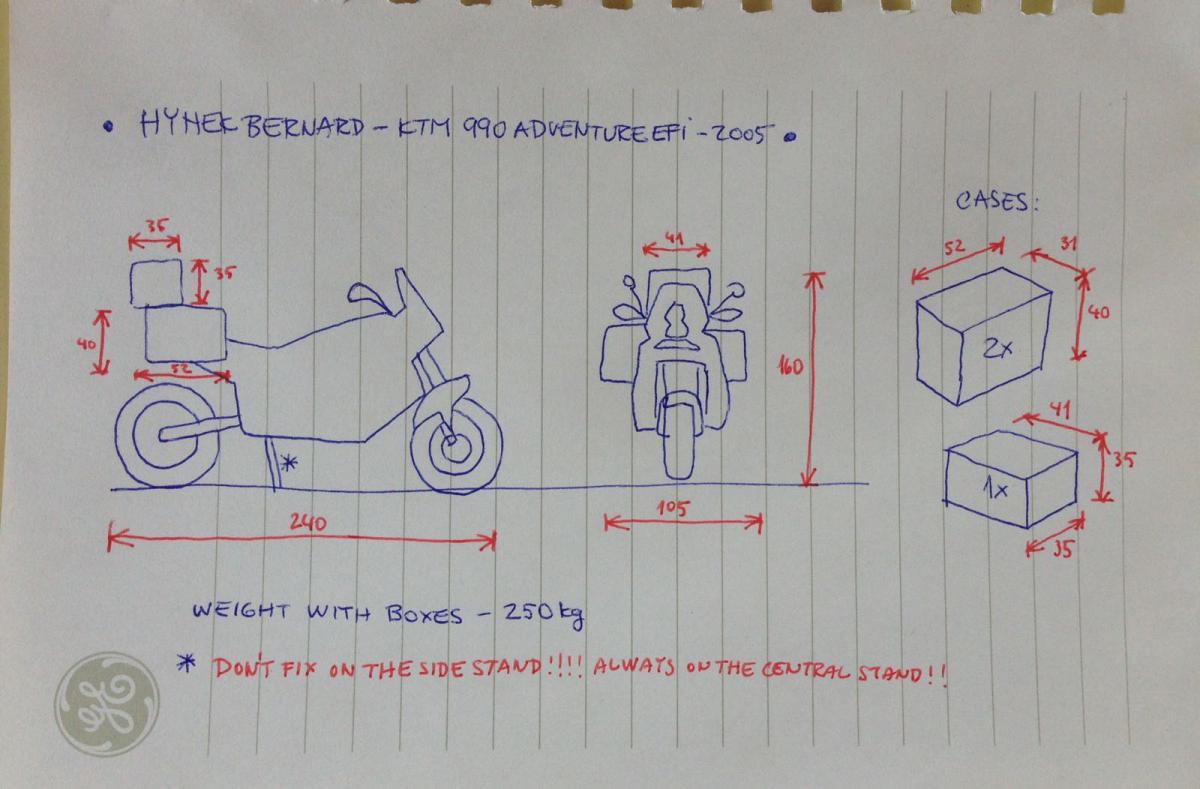 • HYNEK BERNARD - KTM 990 ADVENTURE EFi - 2005 •
CASES:
35
35
40
52
41
160
240
105
52
31
40
2x
41
35
1x
35
WEIGHT WITH BOXES - 250kg
* DON'T FIX ON THE SIDE STAND!!!! ALWAYS ON THE CENTRAL STAND!!
*
GE